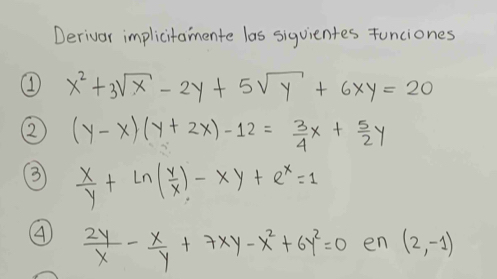 Derivar implicitamente las siguientes Funciones
① x² + 3√x - 2y + 5√y + 6xy = 20
② (y - x)(y + 2x) - 12 = 3/4 x + 5/2 y
③ x/y + Ln(y/x) - xy + eˣ = 1
④ 2y/x - x/y + 7xy - x² + 6y² = 0 en (2, -1)